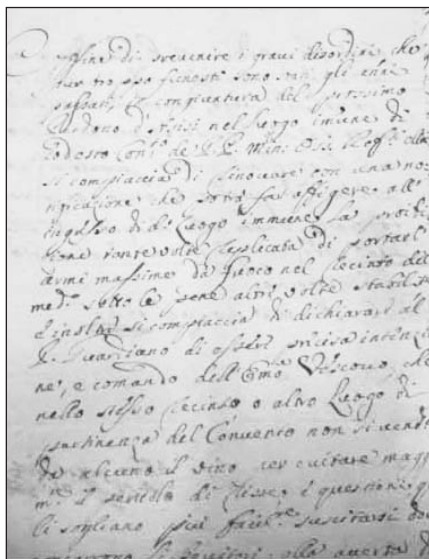 Affine di prevenire i gravi disordini, che
pur troppo funesti sono stati gli anni
passati, in congiuntura del prossimo
Perdono d'Assisi nel luogo immune di
codesto Con.to de' P.P. Min: Oss:
si compiaccia di rinovare con una no:
tificazione che potrà far affigere all'
ingresso di d.o Luogo immune la proibi
zione tante volte replicata di portar l'
armi massime da fuoco nel Recinto del
med.o sotto le pene altre volte stabilite
E inoltre si compiaccia di dichiarare al
P. Guardiano di essere precisa intenzio
ne, e comando dell' Emo Vescovo, che
nello stesso Recinto o altro Luogo di
pertinenza del Convento non si venda
da alcuno il vino per evitare magg
m.e il pericolo di risse, e questioni, q
li sogliano più facil.e suscitarsi do